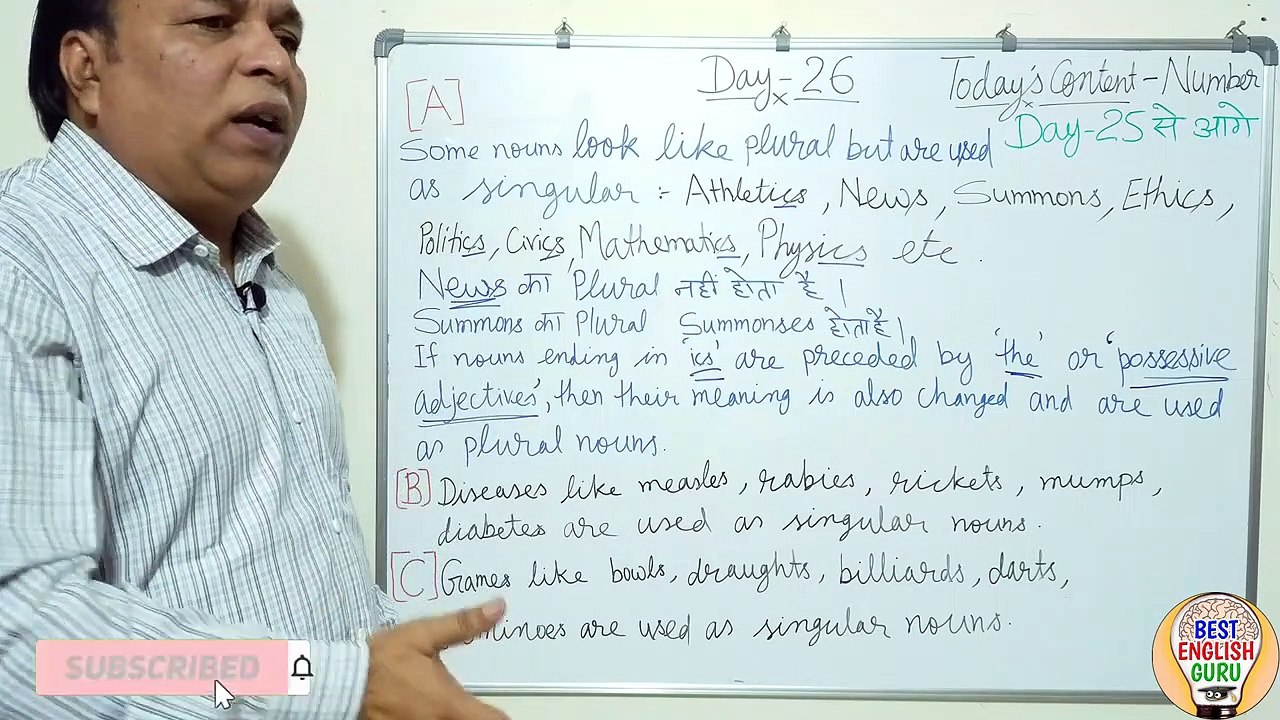 Day-26
Today's Content - Number
Day-25 से आगे
[A]
Some nouns look like plural but are used
as singular :- Athletics, News, Summons, Ethics,
Politics, Civics, Mathematics, Physics etc.
News का Plural नहीं होता है।
Summons का Plural Summonses होता है।
If nouns ending in 'ics' are preceded by 'the' or 'possessive
adjectives', then their meaning is also changed and are used
as plural nouns.
[B] Diseases like measles, rabies, rickets, mumps,
diabetes are used as singular nouns.
[C] Games like bowls, draughts, billiards, darts,
are used as singular nouns.
SUBSCRIBED
BEST
ENGLISH
GURU